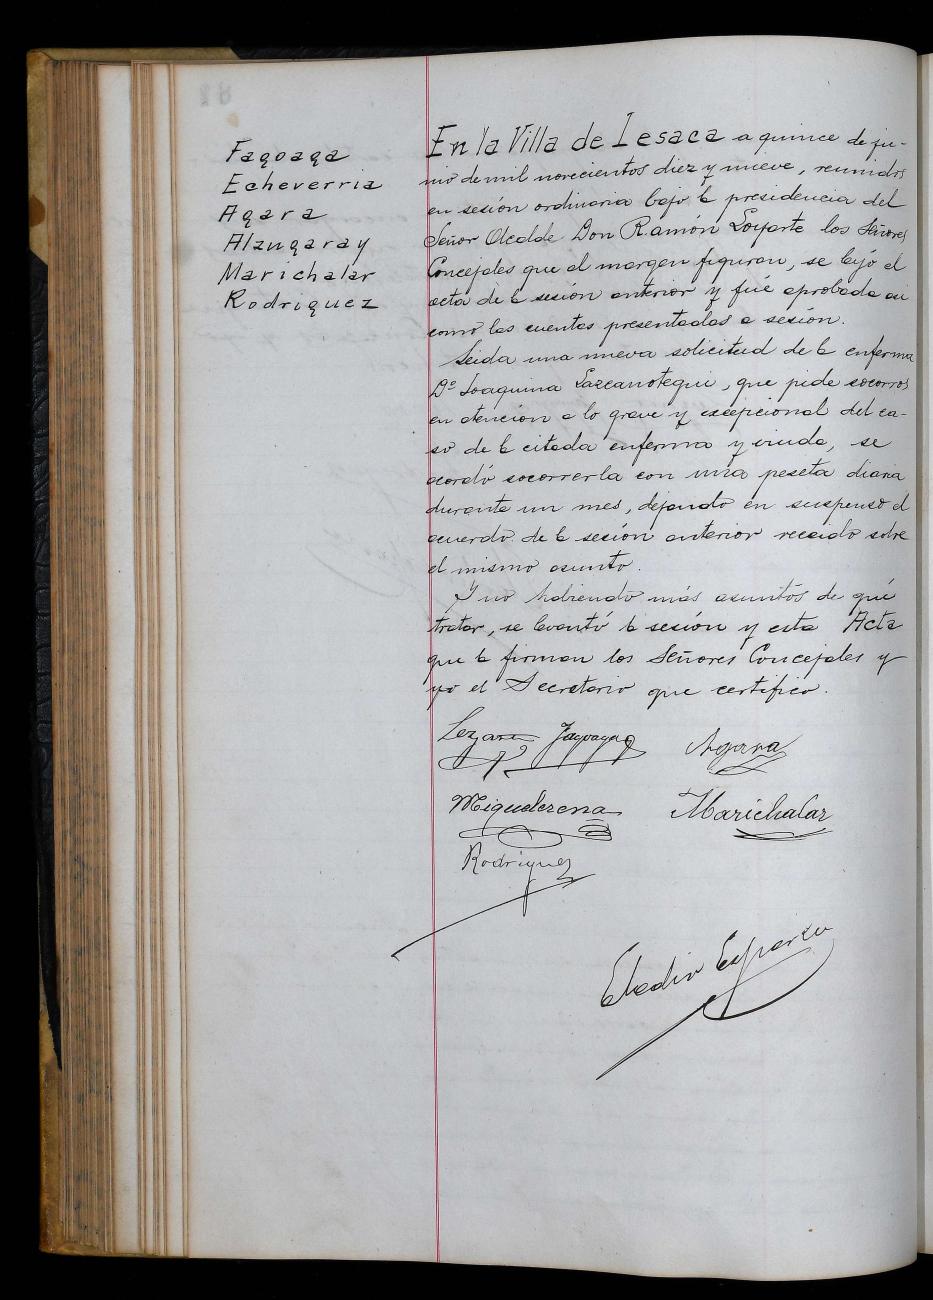 Fagoaga
Echeverria
Agara
Alzugaray
Marichalar
Rodriguez
En la Villa de Lesaca a quince de ju-
nio de mil novecientos diez y nueve, reunidos
en sesión ordinaria bajo la presidencia del
Señor Alcalde Don Ramón Loyarte los Señores
Concejales que al margen figuran, se leyó el
acta de la sesión anterior y fué aprobada asi
como las cuentas presentadas a sesión.
Leida una nueva solicitud de la enferma
Dª Joaquina Lazcanotegui, que pide socorros
en atencion a lo grave y excepcional del ca-
so de la citada enferma y viuda, se
acordó socorrerla con una peseta diaria
durante un mes, dejando en suspenso el
acuerdo de la sesión anterior recaido sobre
el mismo asunto.
Y no habiendo más asuntos de qué
tratar, se levantó la sesión y esta Acta
que la firman los Señores Concejales y
yo el Secretario que certifico.
Fagoaga Agara
Miguelerena Marichalar
Rodriguez
Eladio Esparza